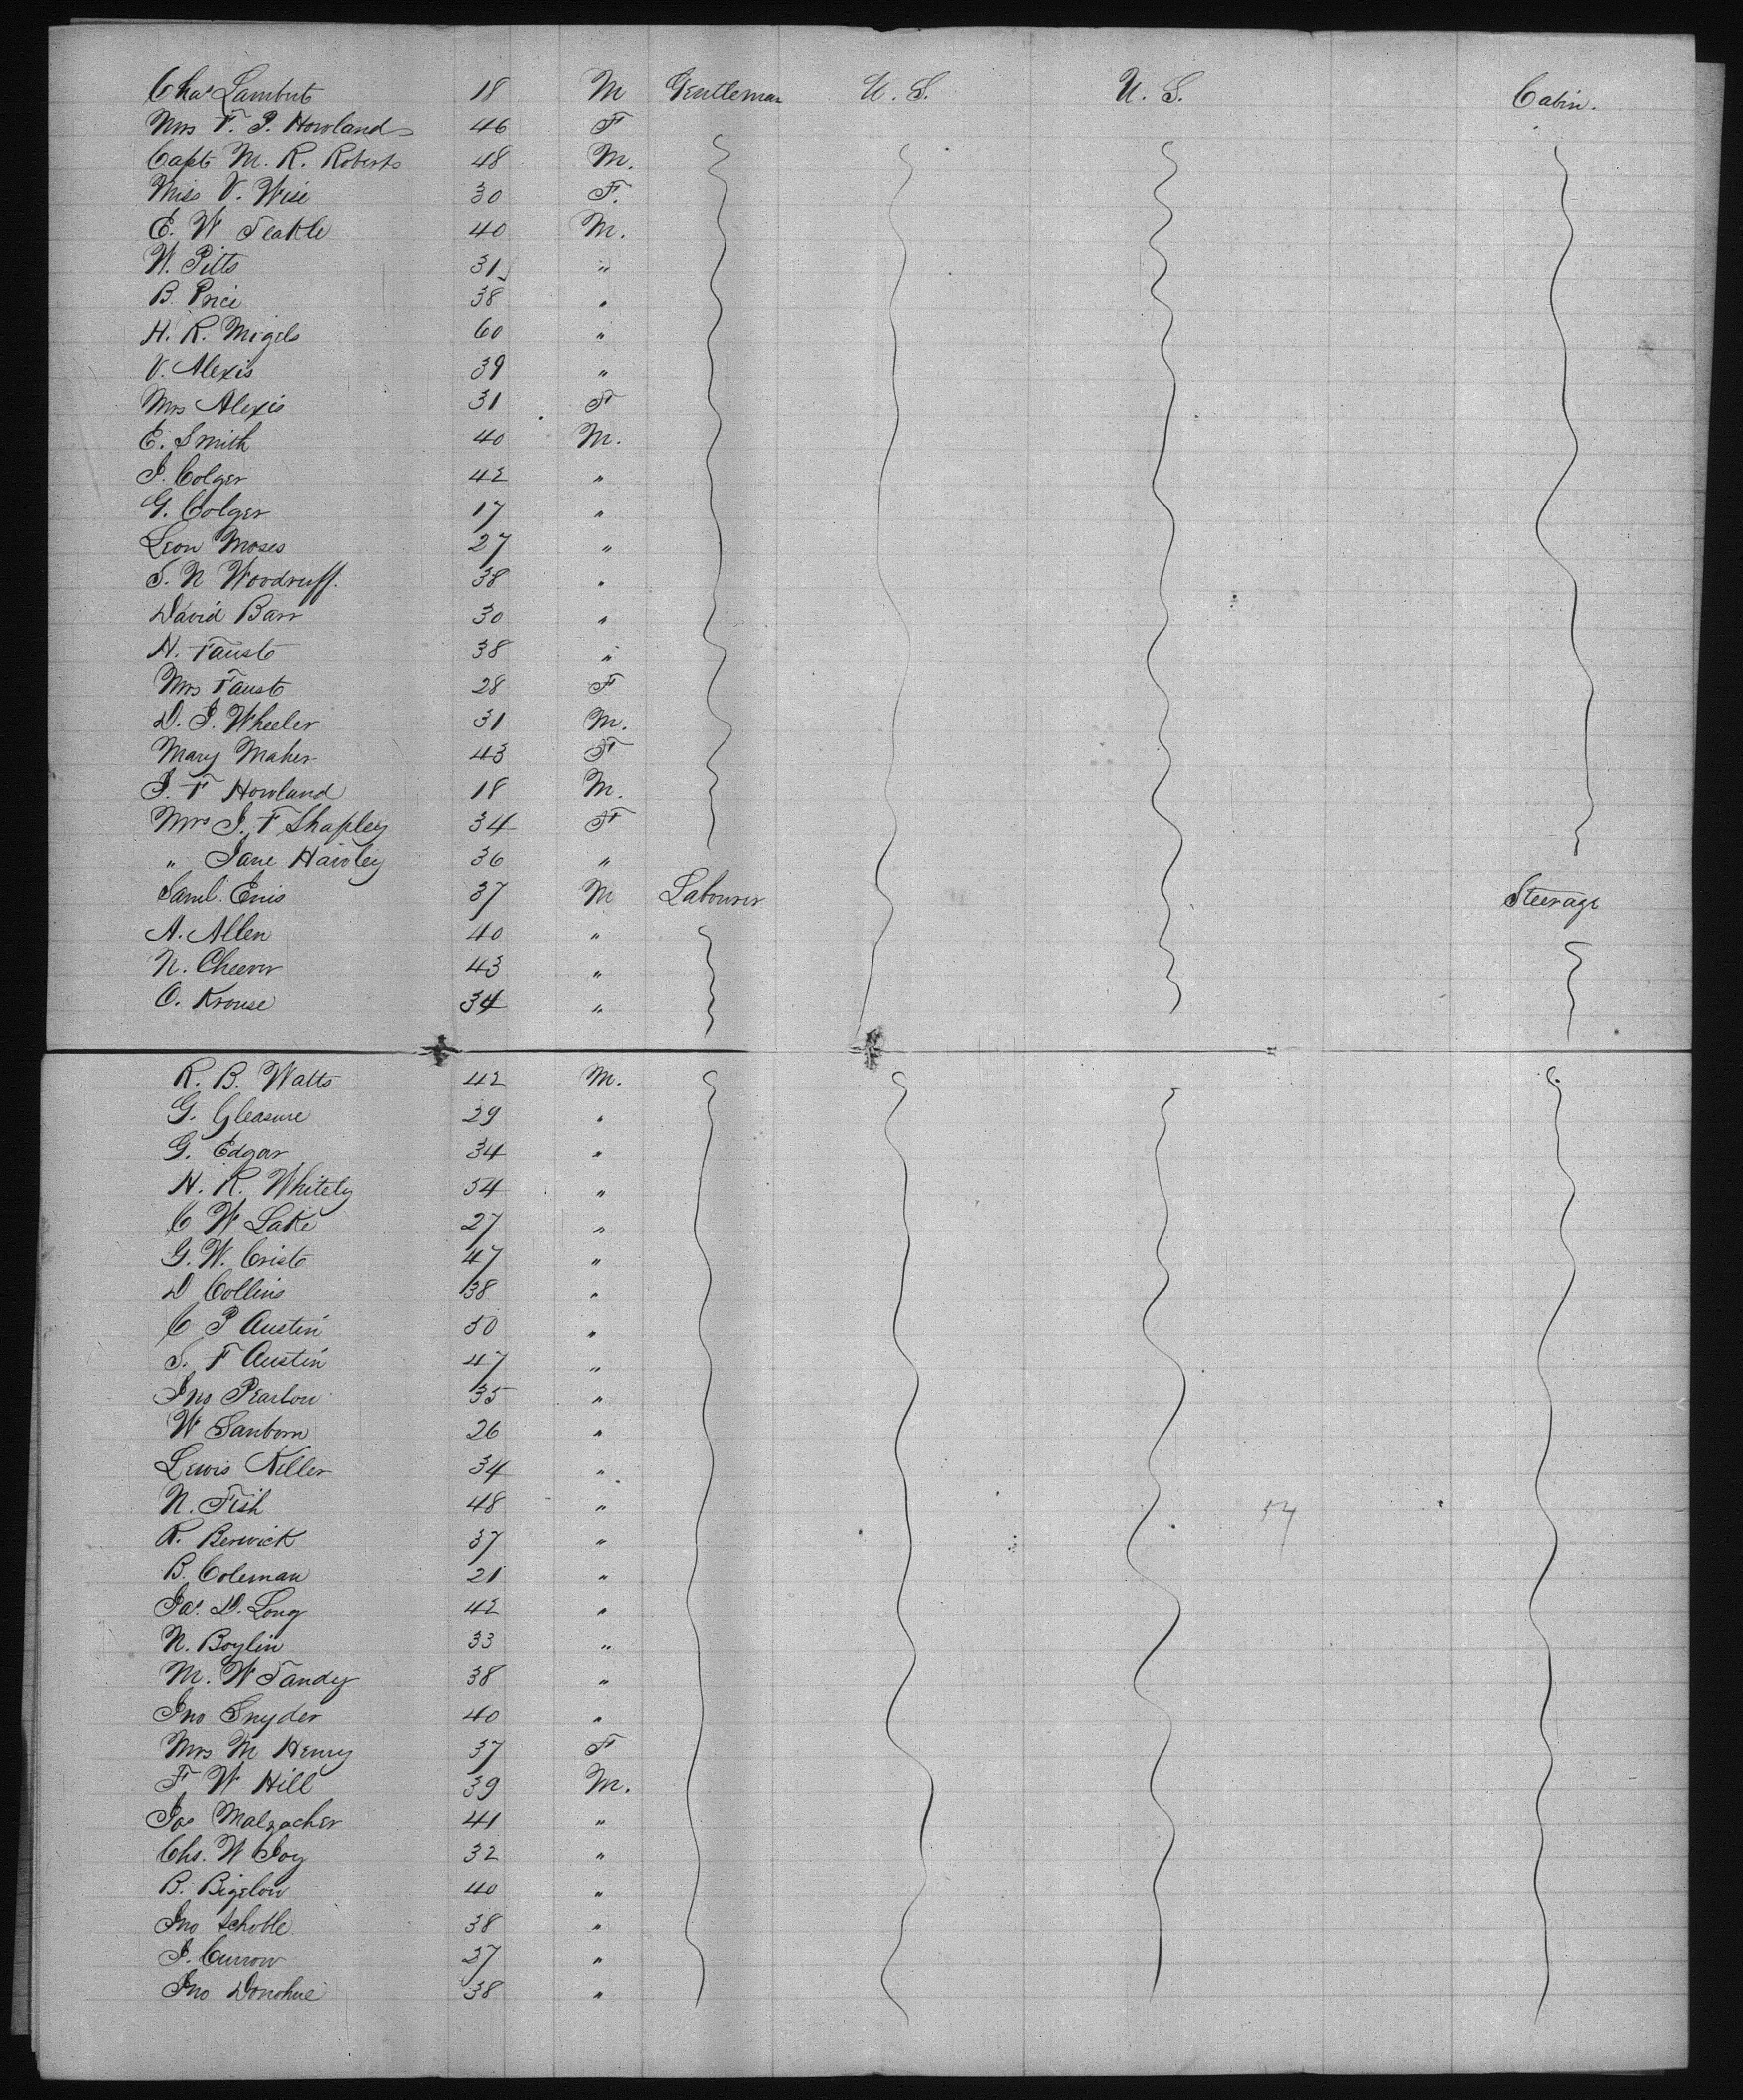 Chas Lambert 18 M Gentleman U. S. U. S. Cabin.
Mrs F. P. Howland 46 F
Capt M. R. Roberts 48 M.
Miss V. Wise 30 F.
E. W Seattle 40 M.
W. Pitts 31 "
B. Price 38 "
H. R. Migels 60 "
V. Alexis 39 "
Mrs Alexis 31 F
E. Smith 40 M.
J. Colger 42 "
G. Colger 17 "
Leon Moses 27 "
S. N Woodruff. 38 "
David Barr 30 "
H. Faust 38 "
Mrs Faust 28 F
D. J. Wheeler 31 M.
Mary Maher 43 F
J. F Howland 18 M.
Mrs J. F Shapley 34 F
" Jane Hawley 36 "
Saml. Enis 37 M Labourer Steerage
A. Allen 40 "
N. Cheever 43 "
O. Krouse 34 "
R. B. Watts 42 M.
G. Gleasure 29 "
G. Edgar 34 "
H. R. Whitely 54 "
C W Lake 27 "
G. W. Crist 47 "
D Collins 38 "
C P Austin 50 "
S. F Austin 47 "
Jno 35 "
W Sanborn 26 "
Lewis Keller 34 "
N. Fish 48 "
R. Berwick 37 "
B. Coleman 21 "
Jas. D. Long 42 "
N. Boylin 33 "
M. W Tandy 38 "
Jno Snyder 40 "
Mrs M Henry 37 F
F W Hill 39 M.
Jos Malzacher 41 "
Chs. W Joy 32 "
B. Bigelow 40 "
Jno Schoble 38 "
J. Currow 27 "
Jno Donohue 38 "